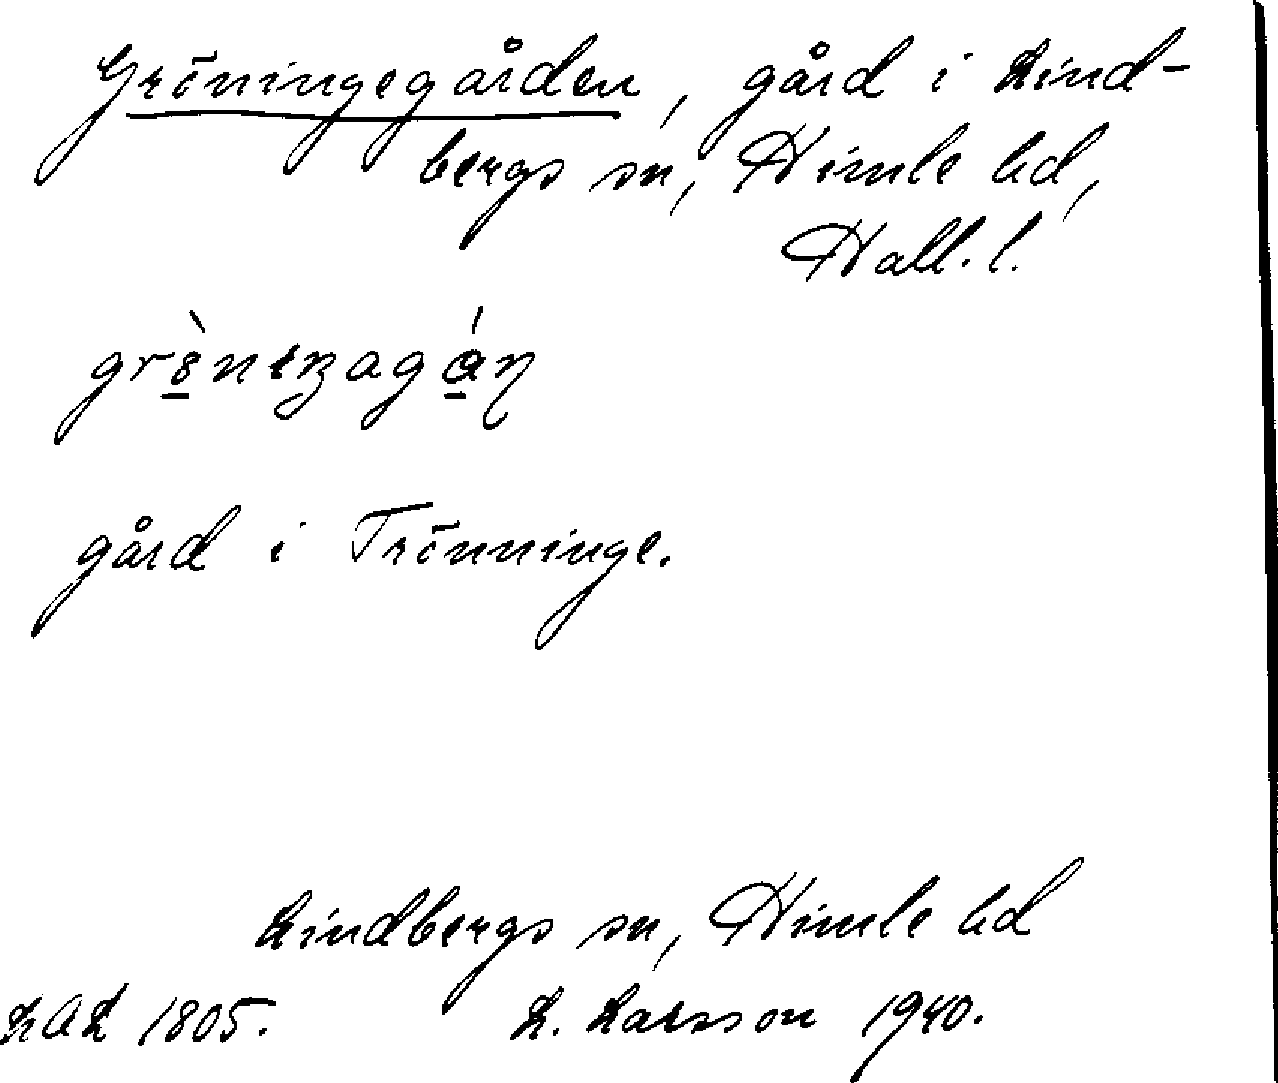 Gröningegården, gård i Lind-
bergs sn, Himle hd,
Hall. l.
gård i Trönninge.
Lindbergs sn, Himle hd
LAL 1805. L. Larsson 1940.